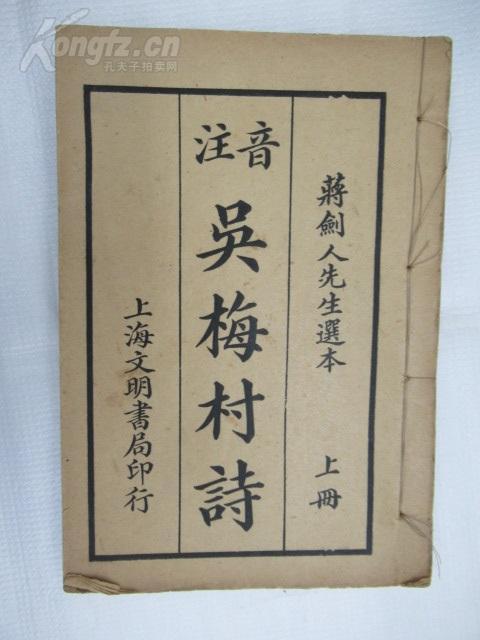 Kongfz.cn
孔夫子拍卖网
蔣劍人先生選本 上冊
音注
吳梅村詩
上海文明書局印行